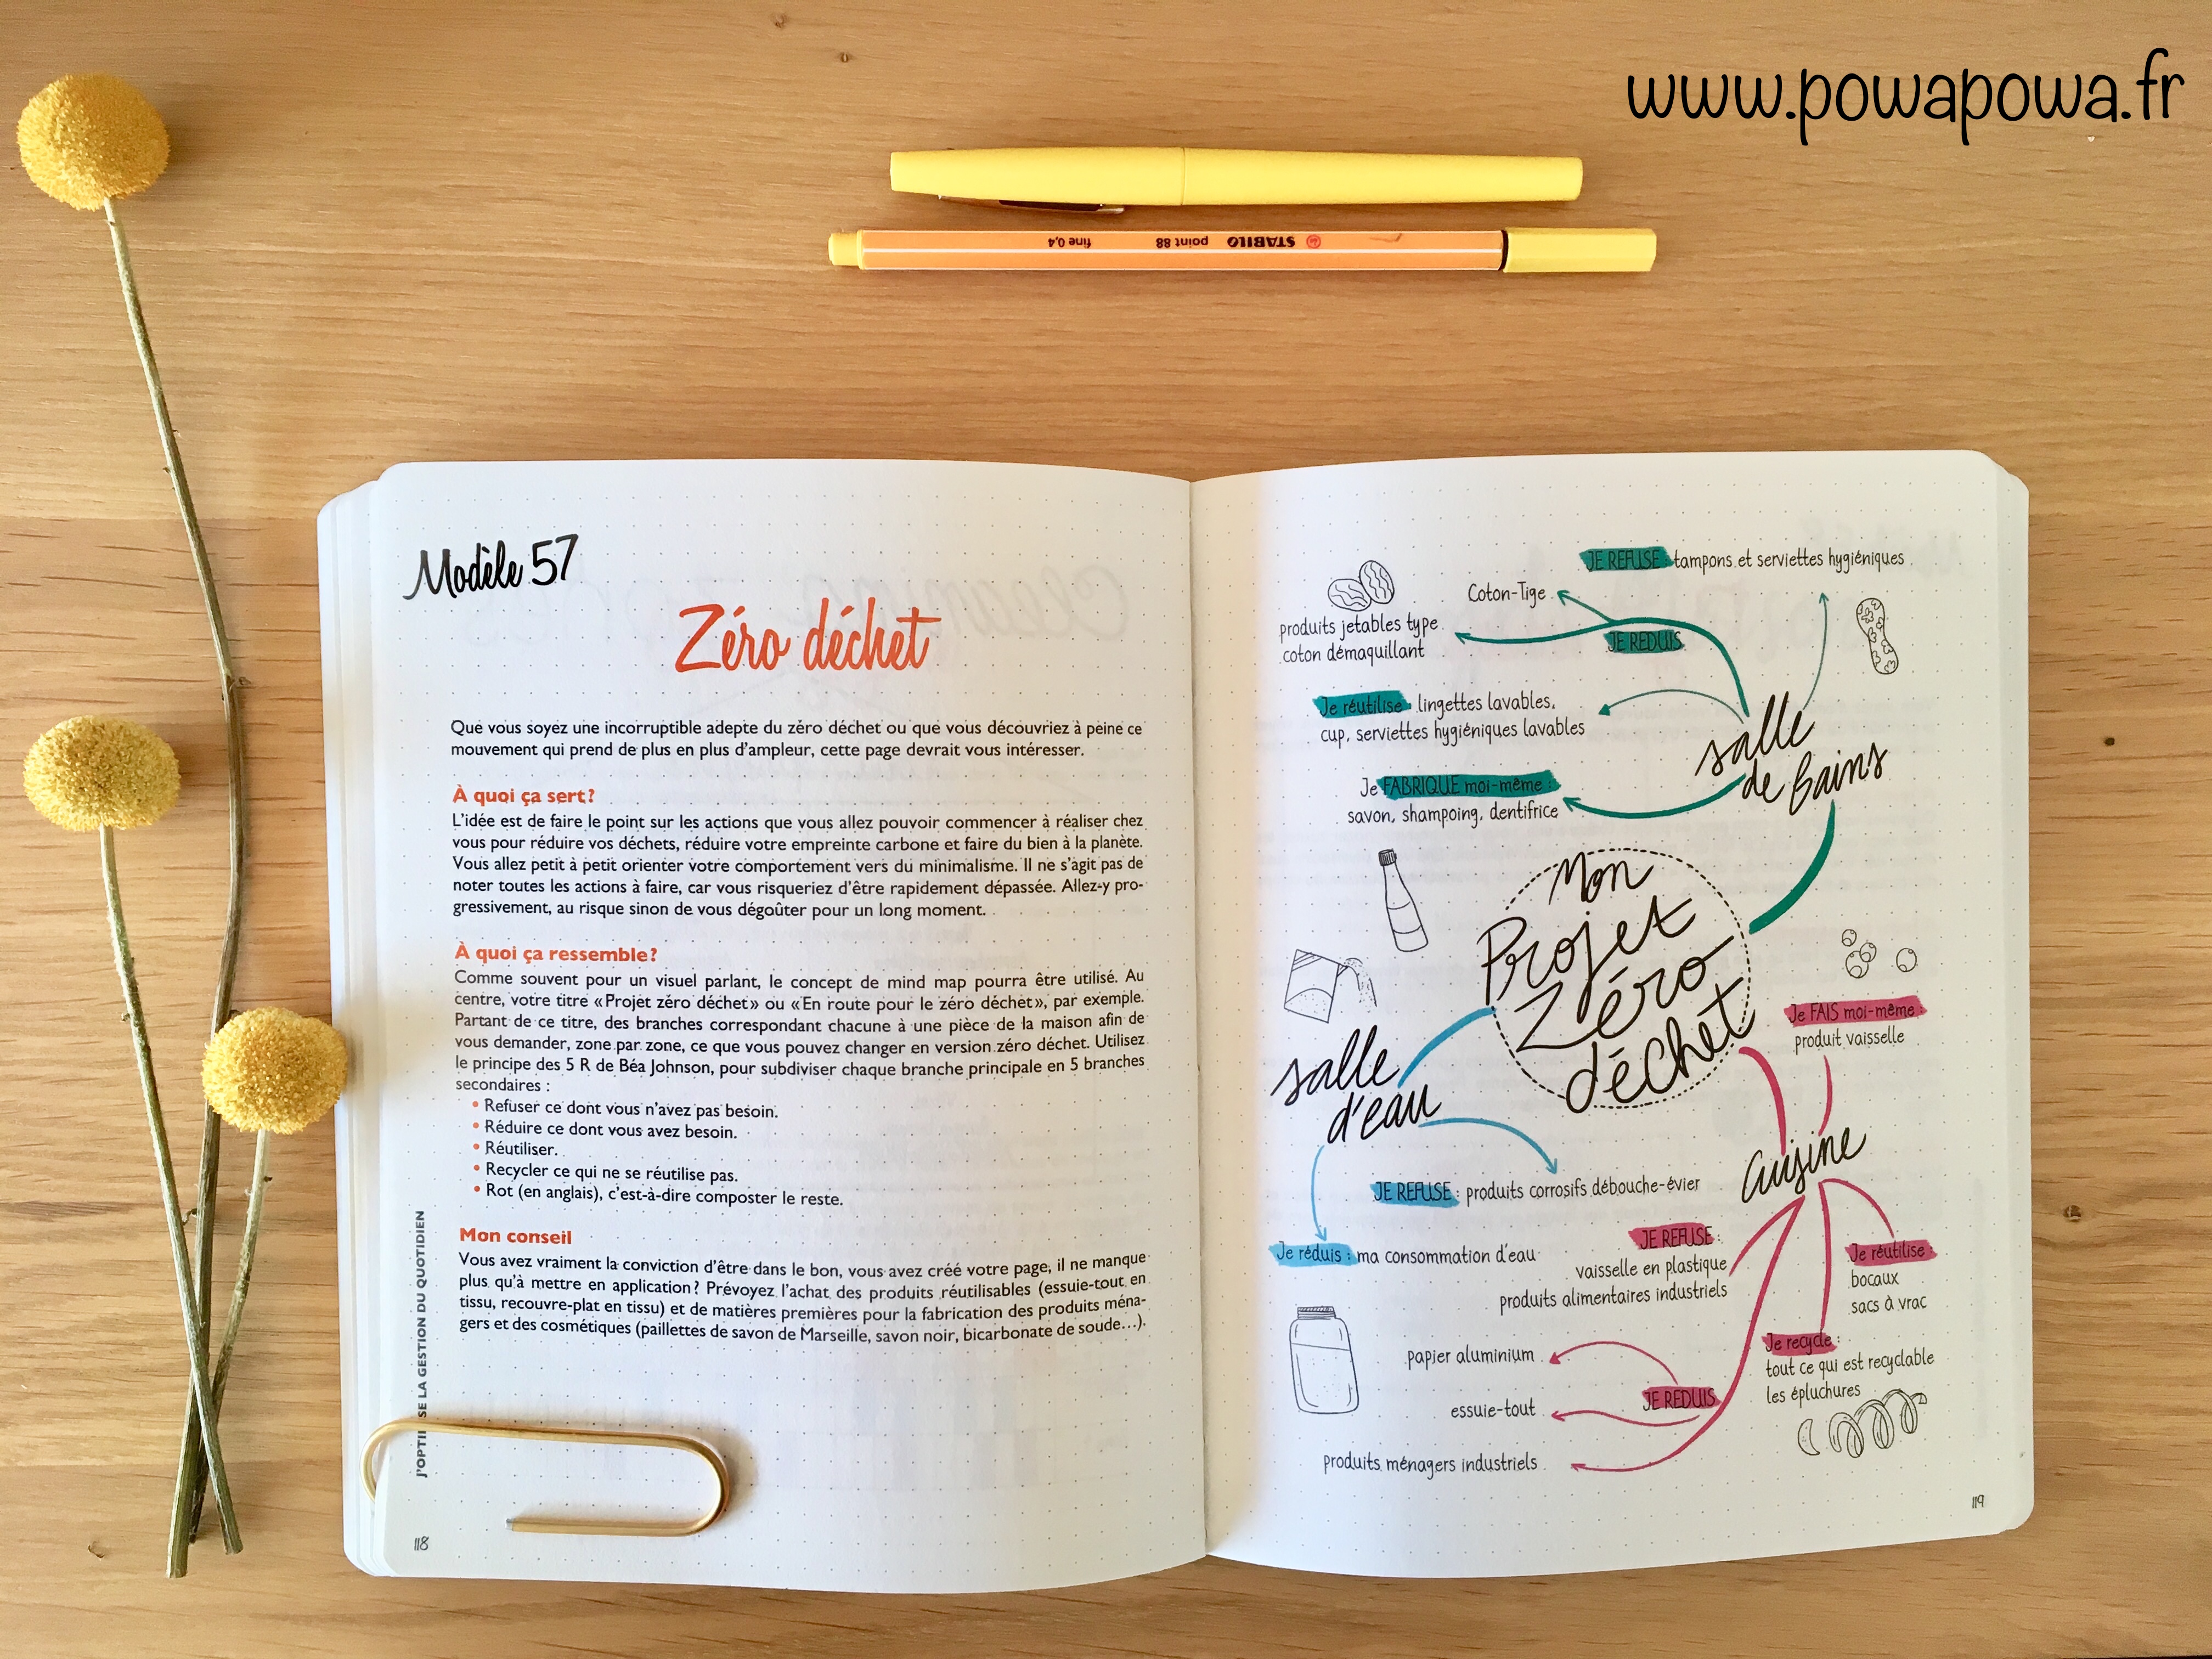 www.powapowa.fr
fine 0,4 point 88 STABILO
Modèle 57
Zéro déchet
Que vous soyez une incorruptible adepte du zéro déchet ou que vous découvriez à peine ce
mouvement qui prend de plus en plus d'ampleur, cette page devrait vous intéresser.
À quoi ça sert?
L'idée est de faire le point sur les actions que vous allez pouvoir commencer à réaliser chez
vous pour réduire vos déchets, réduire votre empreinte carbone et faire du bien à la planète.
Vous allez petit à petit orienter votre comportement vers du minimalisme. Il ne s'agit pas de
noter toutes les actions à faire, car vous risqueriez d'être rapidement dépassée. Allez-y pro-
gressivement, au risque sinon de vous dégoûter pour un long moment.
À quoi ça ressemble?
Comme souvent pour un visuel parlant, le concept de mind map pourra être utilisé. Au
centre, votre titre «Projet zéro déchet» ou «En route pour le zéro déchet», par exemple.
Partant de ce titre, des branches correspondant chacune à une pièce de la maison afin de
vous demander, zone par zone, ce que vous pouvez changer en version zéro déchet. Utilisez
le principe des 5 R de Béa Johnson, pour subdiviser chaque branche principale en 5 branches
secondaires :
• Refuser ce dont vous n'avez pas besoin.
• Réduire ce dont vous avez besoin.
• Réutiliser.
• Recycler ce qui ne se réutilise pas.
• Rot (en anglais), c'est-à-dire composter le reste.
Mon conseil
Vous avez vraiment la conviction d'être dans le bon, vous avez créé votre page, il ne manque
plus qu'à mettre en application? Prévoyez l'achat des produits réutilisables (essuie-tout en
tissu, recouvre-plat en tissu) et de matières premières pour la fabrication des produits ména-
gers et des cosmétiques (paillettes de savon de Marseille, savon noir, bicarbonate de soude…).
J'OPTI SE LA GESTION DU QUOTIDIEN
118
JE REFUSE : tampons et serviettes hygiéniques
Coton-Tige
produits jetables type
coton démaquillant
JE REDUIS
Je réutilise : lingettes lavables,
cup, serviettes hygiéniques lavables
salle
de bains
Je FABRIQUE moi-même :
savon, shampoing, dentifrice
Mon
Projet
Zéro
déchet
Je FAIS moi-même :
produit vaisselle
salle
d'eau
cuisine
JE REFUSE : produits corrosifs débouche-évier
Je réduis : ma consommation d'eau
JE REFUSE :
vaisselle en plastique
produits alimentaires industriels
Je réutilise :
bocaux
sacs à vrac
Je recycle :
tout ce qui est recyclable
les épluchures
papier aluminium
JE REDUIS
essuie-tout
produits ménagers industriels
119